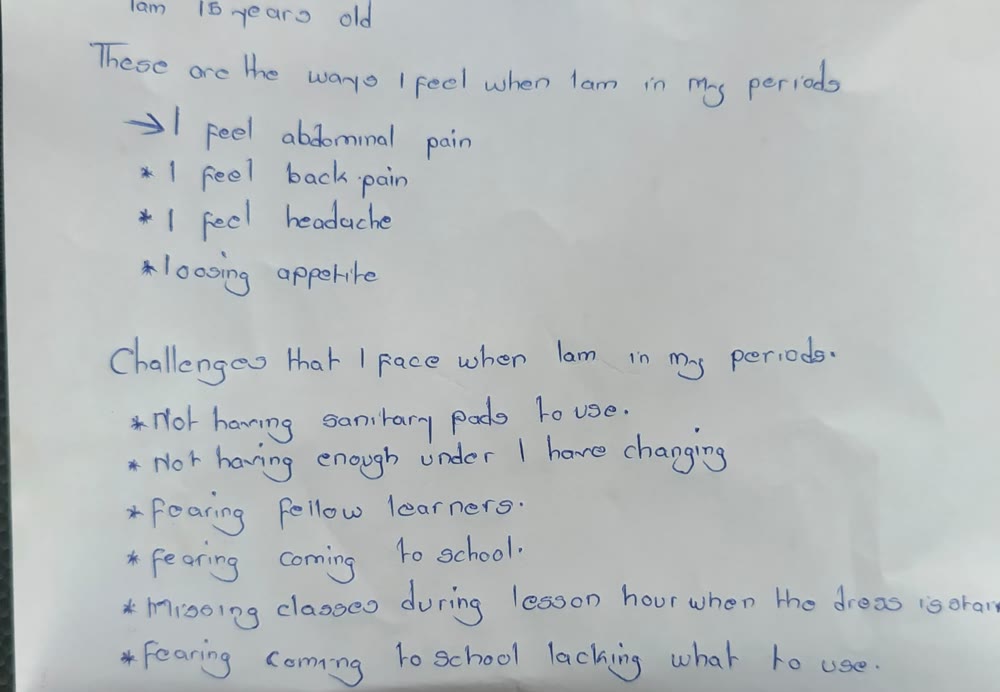 Iam 15 years old
These are the ways I feel when Iam in my periods
→ I feel abdominal pain
* I feel back pain
* I feel headache
* loosing appetite
Challenges that I face when Iam in my periods.
* Not having sanitary pads to use.
* Not having enough under I have changing
* Fearing fellow learners.
* Fearing coming to school.
* Missing classes during lesson hour when the dress is
* Fearing coming to school lacking what to use.